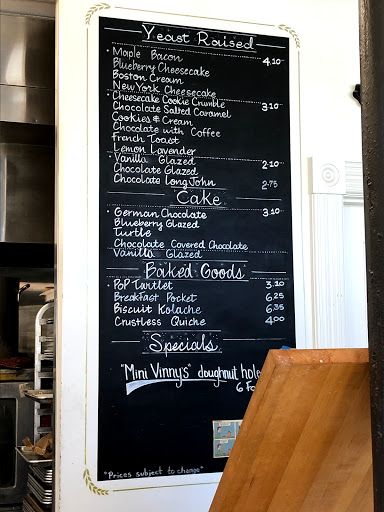 Yeast Raised
Maple Bacon 4.10
Blueberry Cheesecake
Boston Cream
New York Cheesecake
Cheesecake Cookie Crumble 3.10
Chocolate Salted Caramel
Cookies & Cream
Chocolate with Coffee
French Toast
Lemon Lavender
Vanilla Glazed 2.10
Chocolate Glazed
Chocolate Long John 2.75
Cake
German Chocolate 3.10
Blueberry Glazed
Turtle
Chocolate Covered Chocolate
Vanilla Glazed
Baked Goods
Pop Tartlet 3.10
Breakfast Pocket 6.25
Biscuit Kolache 6.35
Crustless Quiche 4.00
Specials
"Mini Vinny's" doughnut hole
6 Fo
"Prices subject to change"